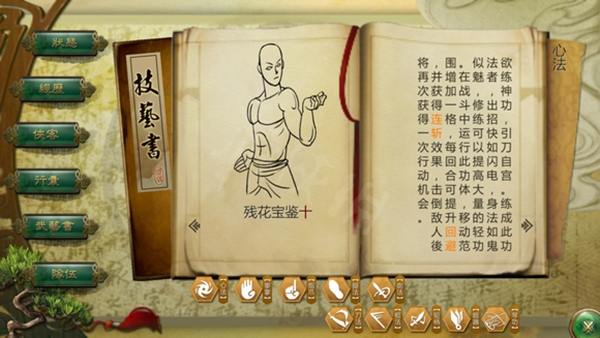 狀態
經歷
俠客
行囊
武藝書
隊伍
技藝書
残花宝鉴十
心法
欲练神功，引刀自宫。练成此功
法者，出招快如闪电，身法如鬼
似魅，修练可以提高大量的轻功
。在战斗中运行此功体，移动范
围增加一格，每回合可提升回避
，并获得连斩效果，击倒敌人後
将再次获得一次行动机会。